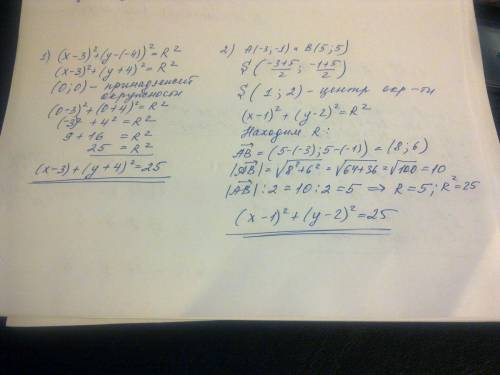 1) (x-3)²+(y-(-4))²=R²
(x-3)²+(y+4)²=R²
(0;0) - принадлежит
окружности
(0-3)²+(0+4)²=R²
(-3)²+4²=R²
9+16 =R²
25 =R²
(x-3)+(y+4)²=25
2) A(-3;-1) и B(5;5)
S(\frac{-3+5}{2};\frac{-1+5}{2})
S(1;2) - центр окр-ти
(x-1)²+(y-2)²=R²
Находим R:
\overrightarrow{AB}=(5-(-3);5-(-1))=(8;6)
|\overrightarrow{AB}|=√8²+6²=√64+36=√100=10
|\overrightarrow{AB}|:2=10:2=5 ⇒ R=5; R²=25
(x-1)²+(y-2)²=25